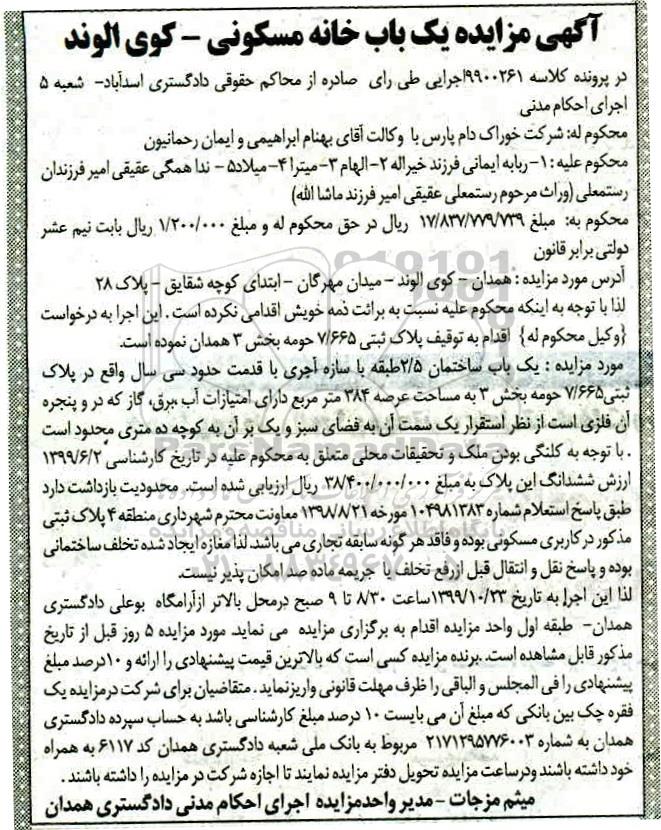 آگهی مزایده یک باب خانه مسکونی - کوی الوند
در پرونده کلاسه ۹۹۰۰۲۶۱اجرایی طی رای صادره از محاکم حقوقی دادگستری اسدآباد- شعبه ۵
اجرای احکام مدنی
محکوم له: شرکت خوراک دام پارس با وکالت آقای بهنام ابراهیمی و ایمان رحمانیون
محکوم علیه : ۱-ربابه ایمانی فرزند خیراله ۲-الهام ۳-میترا ۴-میلاد۵ - ندا همگی عقیقی امیر فرزندان
رستمعلی (وراث مرحوم رستمعلی عقیقی امیر فرزند ماشا الله)
محکوم به: مبلغ ۱۷/۸۳۷/۷۷۹/۷۳۹ ریال در حق محکوم له و مبلغ ۱/۲۰۰/۰۰۰ ریال بابت نیم عشر
دولتی برابر قانون
آدرس مورد مزایده : همدان - کوی الوند - میدان مهرگان -ابتدای کوچه شقایق - پلاک ۲۸
لذا با توجه به اینکه محکوم علیه نسبت به برائت ذمه خویش اقدامی نکرده است . این اجرا به درخواست
{وکیل محکوم له} اقدام به توقیف پلاک ثبتی ۷/۶۶۵ حومه بخش ۳ همدان نموده است.
مورد مزایده : یک باب ساختمان ۲/۵طبقه با سازه آجری با قدمت حدود سی سال واقع در پلاک
ثبتی۷/۶۶۵ حومه بخش ۳ به مساحت عرصه ۳۸۴ متر مربع دارای امتیازات آب ،برق، گاز که در و پنجره
آن فلزی است از نظر استقرار یک سمت آن به فضای سبز و یک بر آن به کوچه ده متری محدود است
. با توجه به کلنگی بودن ملک و تحقیقات محلی متعلق به محکوم علیه در تاریخ کارشناسی ۱۳۹۹/۶/۲
ارزش ششدانگ این پلاک به مبلغ ۳۸/۴۰۰/۰۰۰/۰۰۰ ریال ارزیابی شده است. محدودیت بازداشت دارد
طبق پاسخ استعلام شماره ۱۰۴۹۸۱۳۸۳ مورخه ۱۳۹۸/۸/۲۱ معاونت محترم شهرداری منطقه ۴ پلاک ثبتی
مذکور در کاربری مسکونی بوده و فاقد هر گونه سابقه تجاری می باشد. لذا مغازه ایجاد شده تخلف ساختمانی
بوده و پاسخ نقل و انتقال قبل ازرفع تخلف یا جریمه ماده صد امکان پذیر نیست.
لذا این اجرا به تاریخ ۱۳۹۹/۱۰/۲۳ساعت ۸/۳۰ تا ۹ صبح درمحل بالاتر ازآرامگاه بوعلی دادگستری
همدان- طبقه اول واحد مزایده اقدام به برگزاری مزایده می نماید. مورد مزایده ۵ روز قبل از تاریخ
مذکور قابل مشاهده است. برنده مزایده کسی است که بالاترین قیمت پیشنهادی را ارائه و ۱۰درصد مبلغ
پیشنهادی را فی المجلس و الباقی را ظرف مهلت قانونی واریزنماید . متقاضیان برای شرکت درمزایده یک
فقره چک بین بانکی که مبلغ آن می بایست ۱۰ درصد مبلغ کارشناسی باشد به حساب سپرده دادگستری
همدان به شماره ۲۱۷۱۲۹۵۷۷۶۰۰۳ مربوط به بانک ملی شعبه دادگستری همدان کد ۶۱۱۷ به همراه
خود داشته باشند ودرساعت مزایده تحویل دفتر مزایده نمایند تا اجازه شرکت در مزایده را داشته باشند .
میثم مزجات - مدیر واحدمزایده اجرای احکام مدنی دادگستری همدان